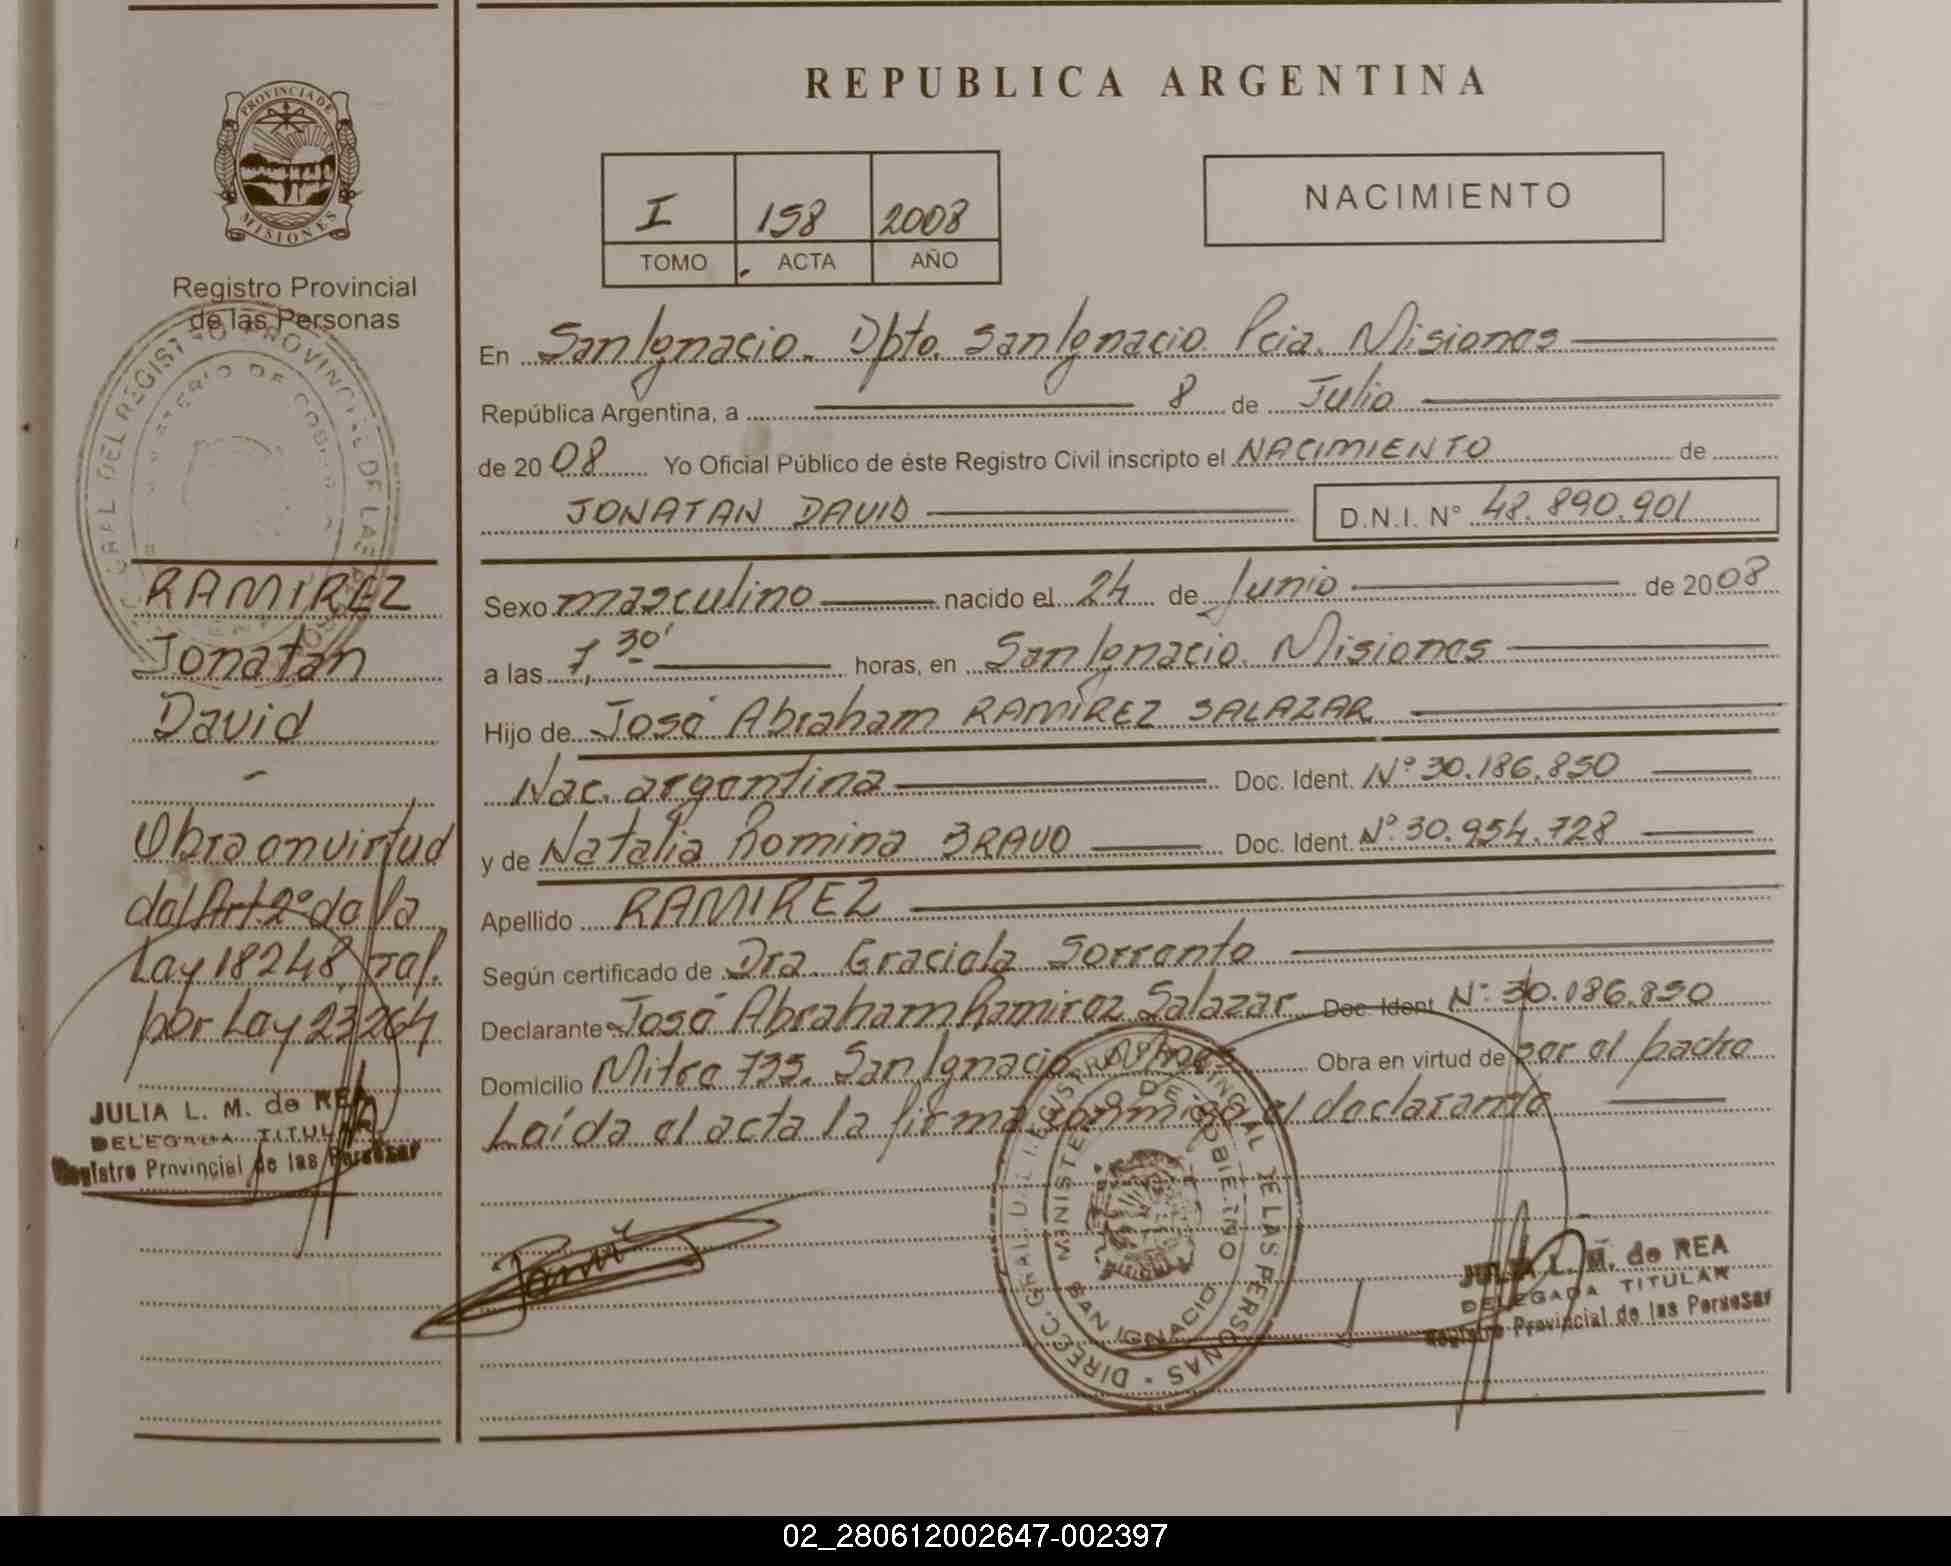 PROVINCIA DE
MISIONES
Registro Provincial
de las Personas
RAMIREZ
Jonatan
David
-
Obra en virtud
del Art 2º de la
Ley 18248, ref.
por Ley 23264
JULIA L. M. de REA
DELEGADA TITULAR
Registro Provincial de las Personas
REPUBLICA ARGENTINA
I 158 2008
TOMO ACTA AÑO
NACIMIENTO
En San Ignacio. Dpto. San Ignacio. Pcia. Misiones
República Argentina, a 8 de Julio
de 2008 Yo Oficial Público de éste Registro Civil inscripto el NACIMIENTO de
JONATAN DAVID D.N.I. Nº 48.890.901
Sexo masculino nacido el 24 de Junio de 2008
a las 7,30' horas, en San Ignacio. Misiones
Hijo de José Abraham RAMÍREZ SALAZAR
Nac. argentina Doc. Ident. Nº 30.186.850
y de Natalia Romina BRAVO Doc. Ident. Nº 30.954.728
Apellido RAMIREZ
Según certificado de Dra. Graciela Sorrento
Declarante José Abraham Ramirez Salazar Doc. Ident Nº 30.186.850
Domicilio Mitre 735. San Ignacio. Mnes Obra en virtud de ser el padre
Leída el acta la firma conmigo el declarante
DIRECC. GRAL. DEL REGISTRO PROVINCIAL DE LAS PERSONAS
MINISTERIO DE GOBIERNO
SAN IGNACIO
JULIA L. M. de REA
DELEGADA TITULAR
Registro Provincial de las Personas
02_280612002647-002397